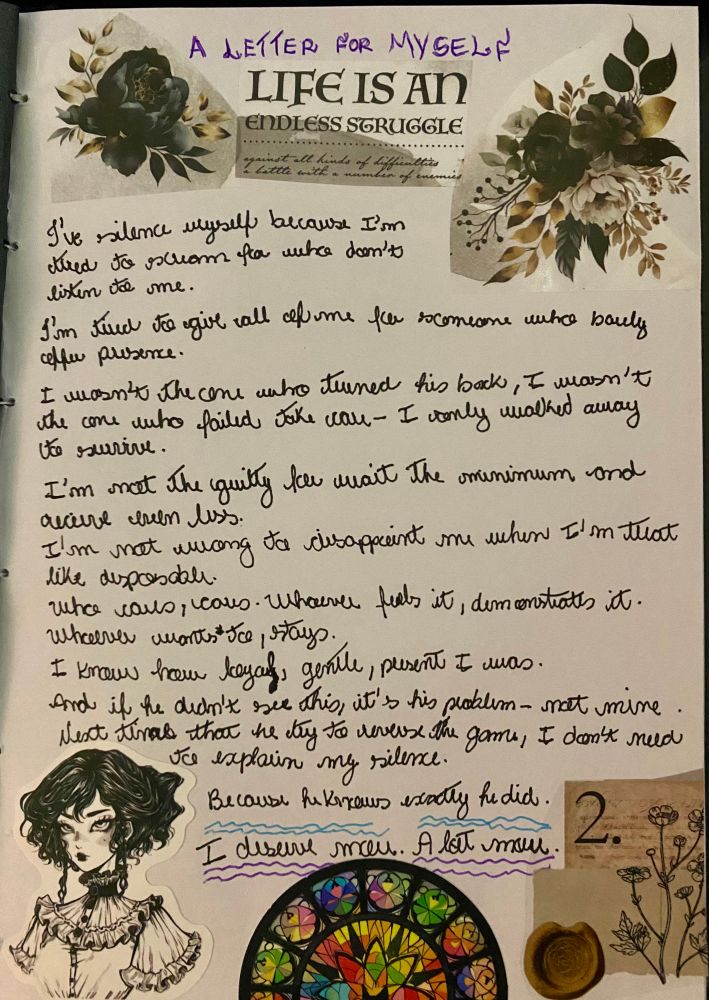 A LETTER FOR MYSELF
LIFE IS AN
ENDLESS STRUGGLE
against all kinds of difficulties
a battle with a number of enemies
I've silence myself because I'm
tired to scream for who don't
listen to me.
I'm tired to give all of me for someone who barely
offer presence.
I wasn't the one who turned his back, I wasn't
the one who failed take care – I only walked away
to survive.
I'm not the guilty for wait the minimum and
receive even less.
I'm not wrong to disappoint me when I'm treat
like disposable.
Who cares, cares. Whoever feels it, demonstrates it.
Whoever wants to, stays.
I know how loyal, gentle, present I was.
And if he didn't see this, it's his problem – not mine.
Next times that he try to reverse the game, I don't need
to explain my silence.
Because he knows exactly he did.
I deserve more. A lot more.
2.